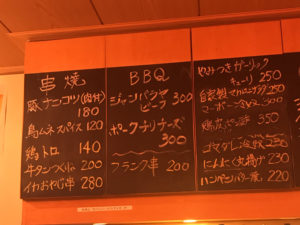 串焼
豚ナンコツ(肉付)
180
鳥ムネスパイス 120
鶏トロ 140
牛タンつくね 200
イカおやじ串 280
BBQ
ジャンバラヤ
ビーフ 300
ポークチリチーズ
300
フランク串 200
やみつきガーリック
キューリ 250
自家製
250
350
ゴマダレ冷奴
にんにく丸揚げ 230
ハンペンバター屋 220